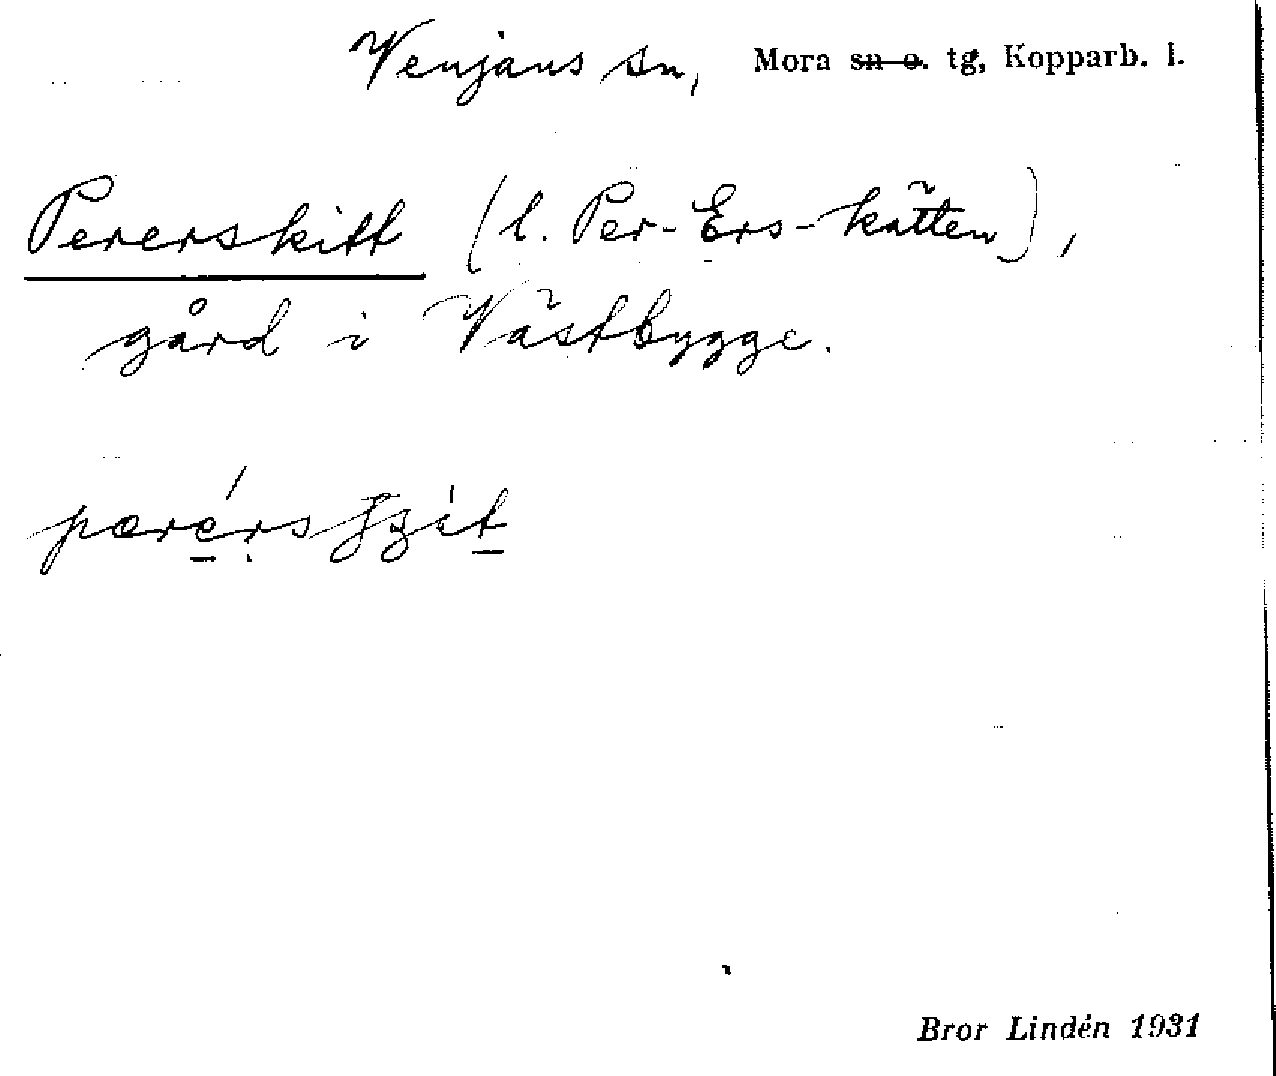 Venjans sn, Mora sn o. tg, Kopparb. l.
Pererskitt (l. Per-Ers-kätten),
gård i Västbygge.
Bror Lindén 1931